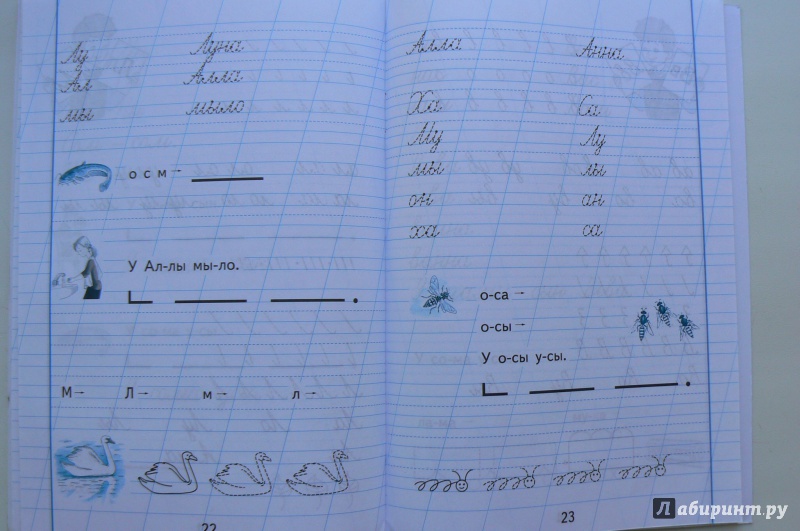 Лу Луна
Ал Алла
мы мыло
о с м –
У Ал-лы мы-ло.
М – Л – м – л –
22
Алла Анна
Ха Са
Му Лу
мы лы
он ан
ха са
о-са –
о-сы –
У о-сы у-сы.
23
Лабиринт.ру